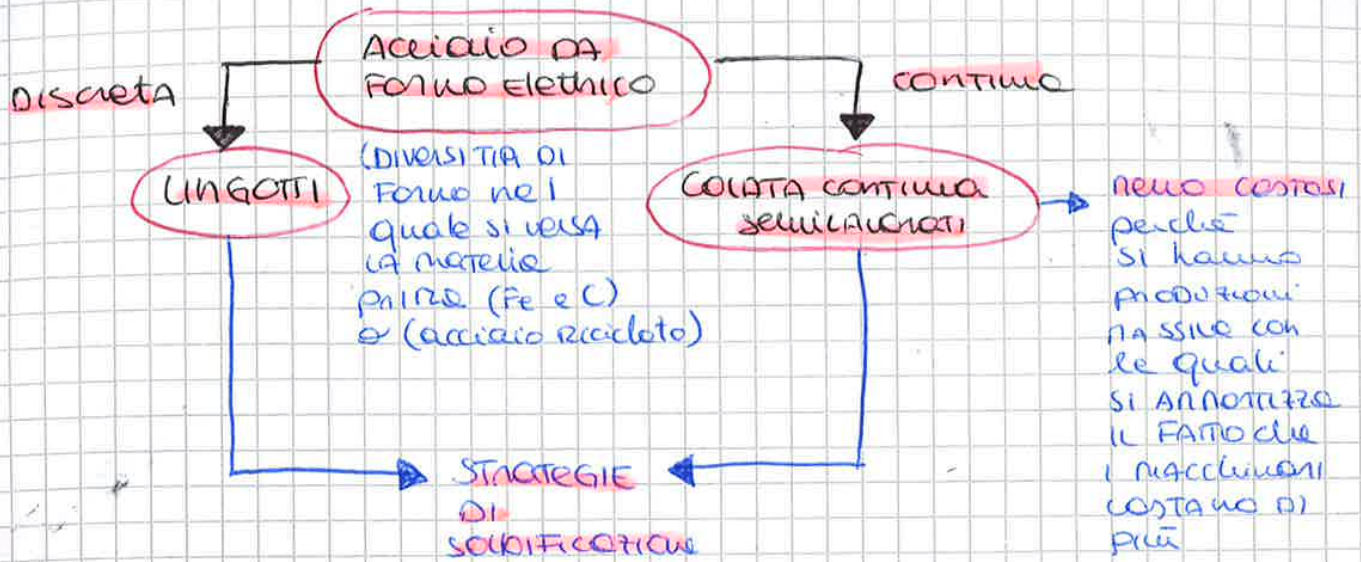 ACCIAIO DA
FORNO Elettrico
DISCRETA
CONTINUA
LINGOTTI
(DIVERSI TIA DI
FORNO nel
quale si versa
LA MATERIA
PRIMA (Fe e C)
o (acciaio Riciclato)
COLATA CONTINUA
SEMILAVORATI
MENO COSTOSI
perché
si hanno
PRODUZIONI
MASSIVE con
le quali
si AMMORTIZZA
IL FATTO che
I MACCHINARI
COSTANO DI
più
STRATEGIE
DI
SOLIDIFICAZIONE